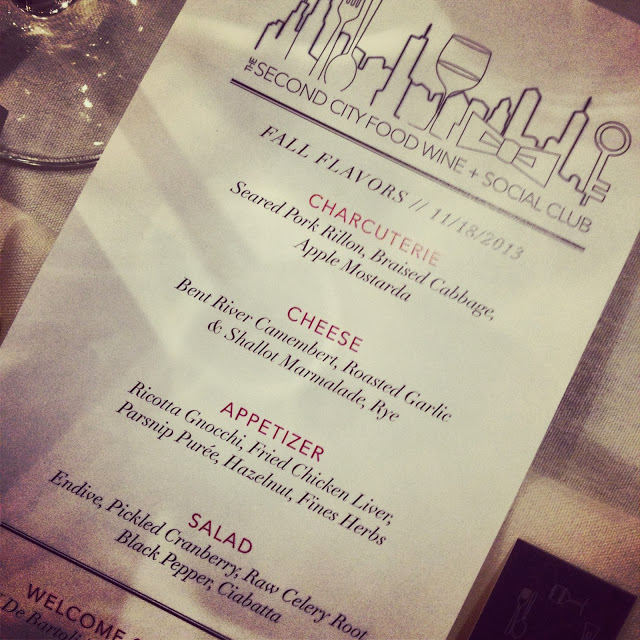 THE SECOND CITY FOOD WINE + SOCIAL CLUB
FALL FLAVORS // 11/18/2013
CHARCUTERIE
Seared Pork Rillon, Braised Cabbage,
Apple Mostarda
CHEESE
Bent River Camembert, Roasted Garlic
& Shallot Marmalade, Rye
APPETIZER
Ricotta Gnocchi, Fried Chicken Liver,
Parsnip Purée, Hazelnut, Fines Herbs
SALAD
Endive, Pickled Cranberry, Raw Celery Root
Black Pepper, Ciabatta
WELCOME